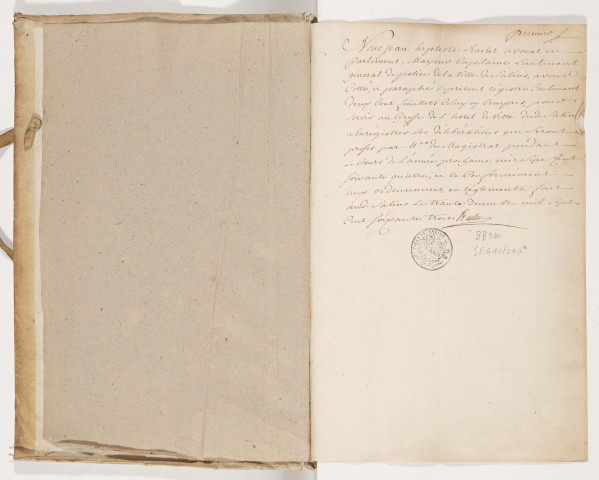 Premier
Nous Jean Baptiste avocat en
parlement, Mayeur Capitaine Lieutenant
general de police de la ville de Salins, avons
Cotté, et paraphé le present registre Contenant
deux Cent feuillets Celuy cy Compris, pour
servir au Greffe de l'hotel de ville dud. Salins
a Enregistrer les deliberations qui seront
prises par Mrs du Magistrat pendant
le Cours de l'année prochaine mil sept Cent
soixante quatre, et ce Conformement
aux ordonnances, et règlements, fait
aud. Salins le trente decembre mil sept
Cent soixante trois
BB24